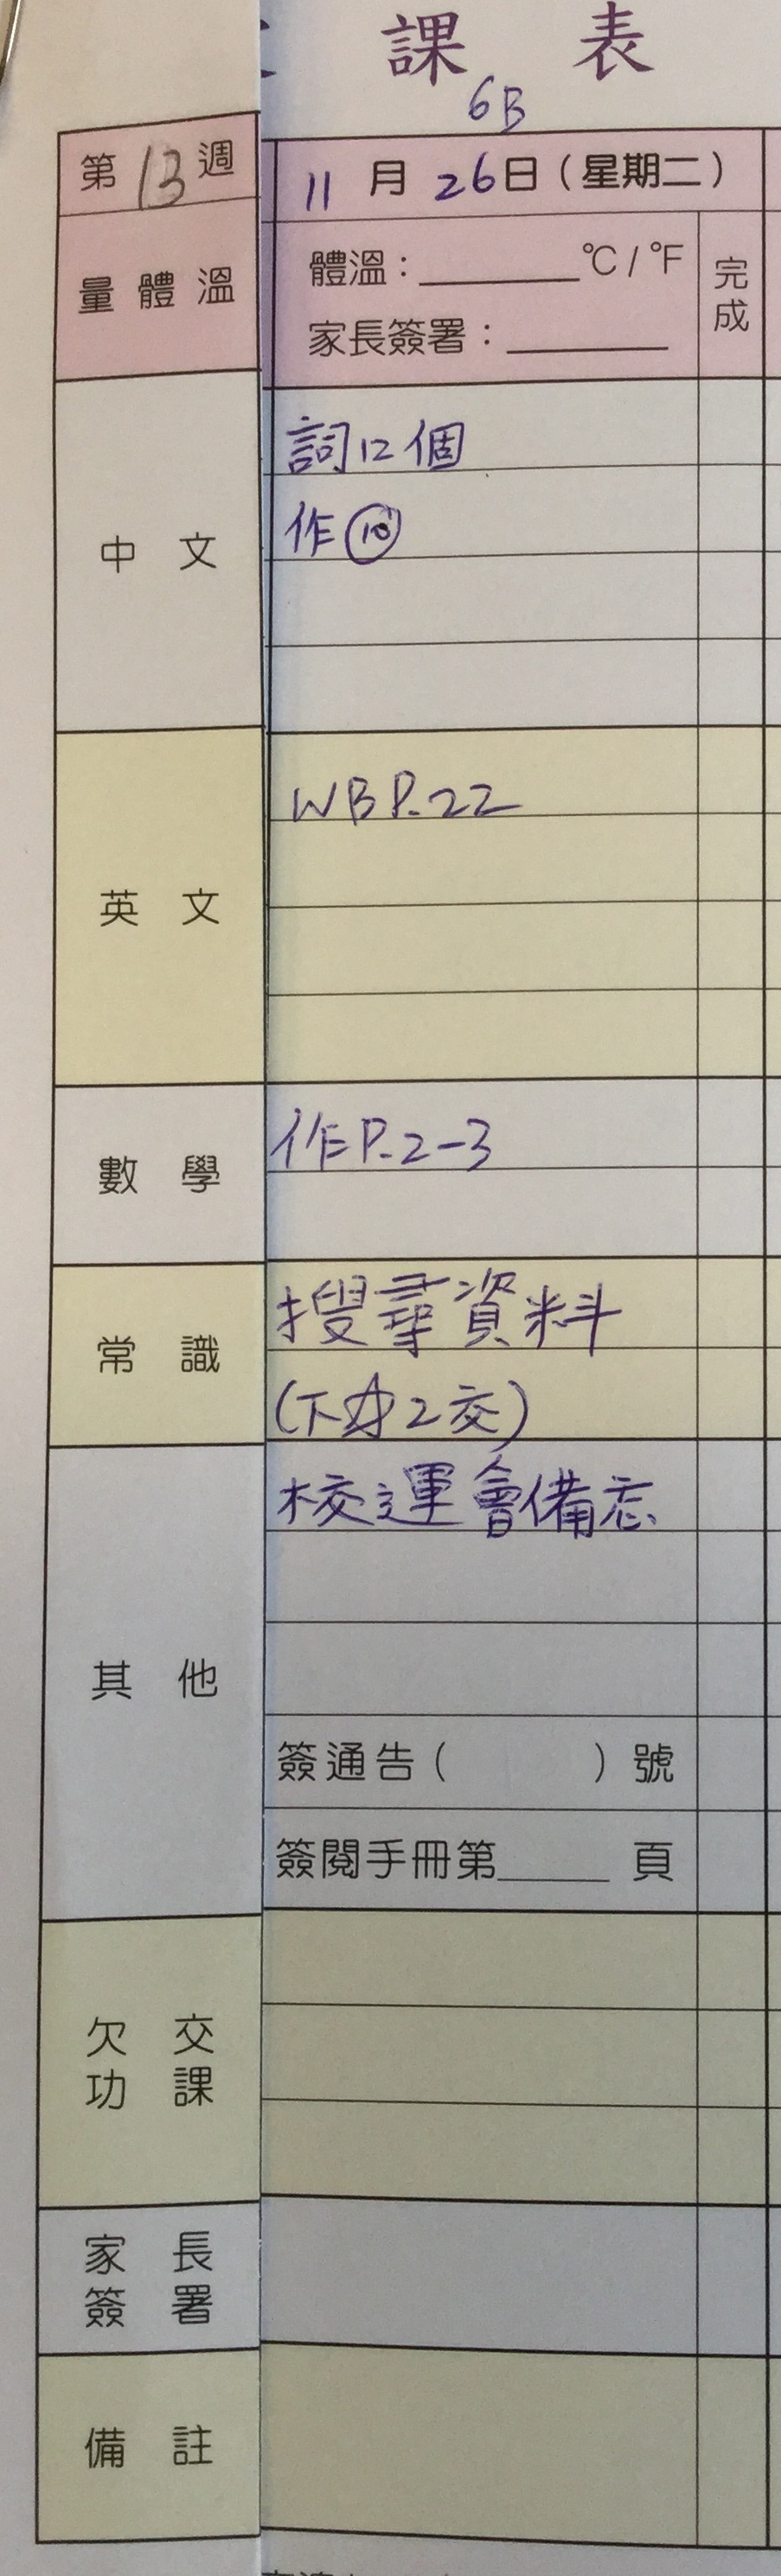 課 表
6B
第 13 週
11 月 26 日 (星期二)
量體溫
體溫：______℃/℉
家長簽署：______
完成
中文
詞12個
作⑩
英文
WB P.22
數學
作P.2-3
常識
搜尋資料
(下 2交)
其他
校運會備忘
簽通告( )號
簽閱手冊第____頁
欠交
功課
家長
簽署
備註